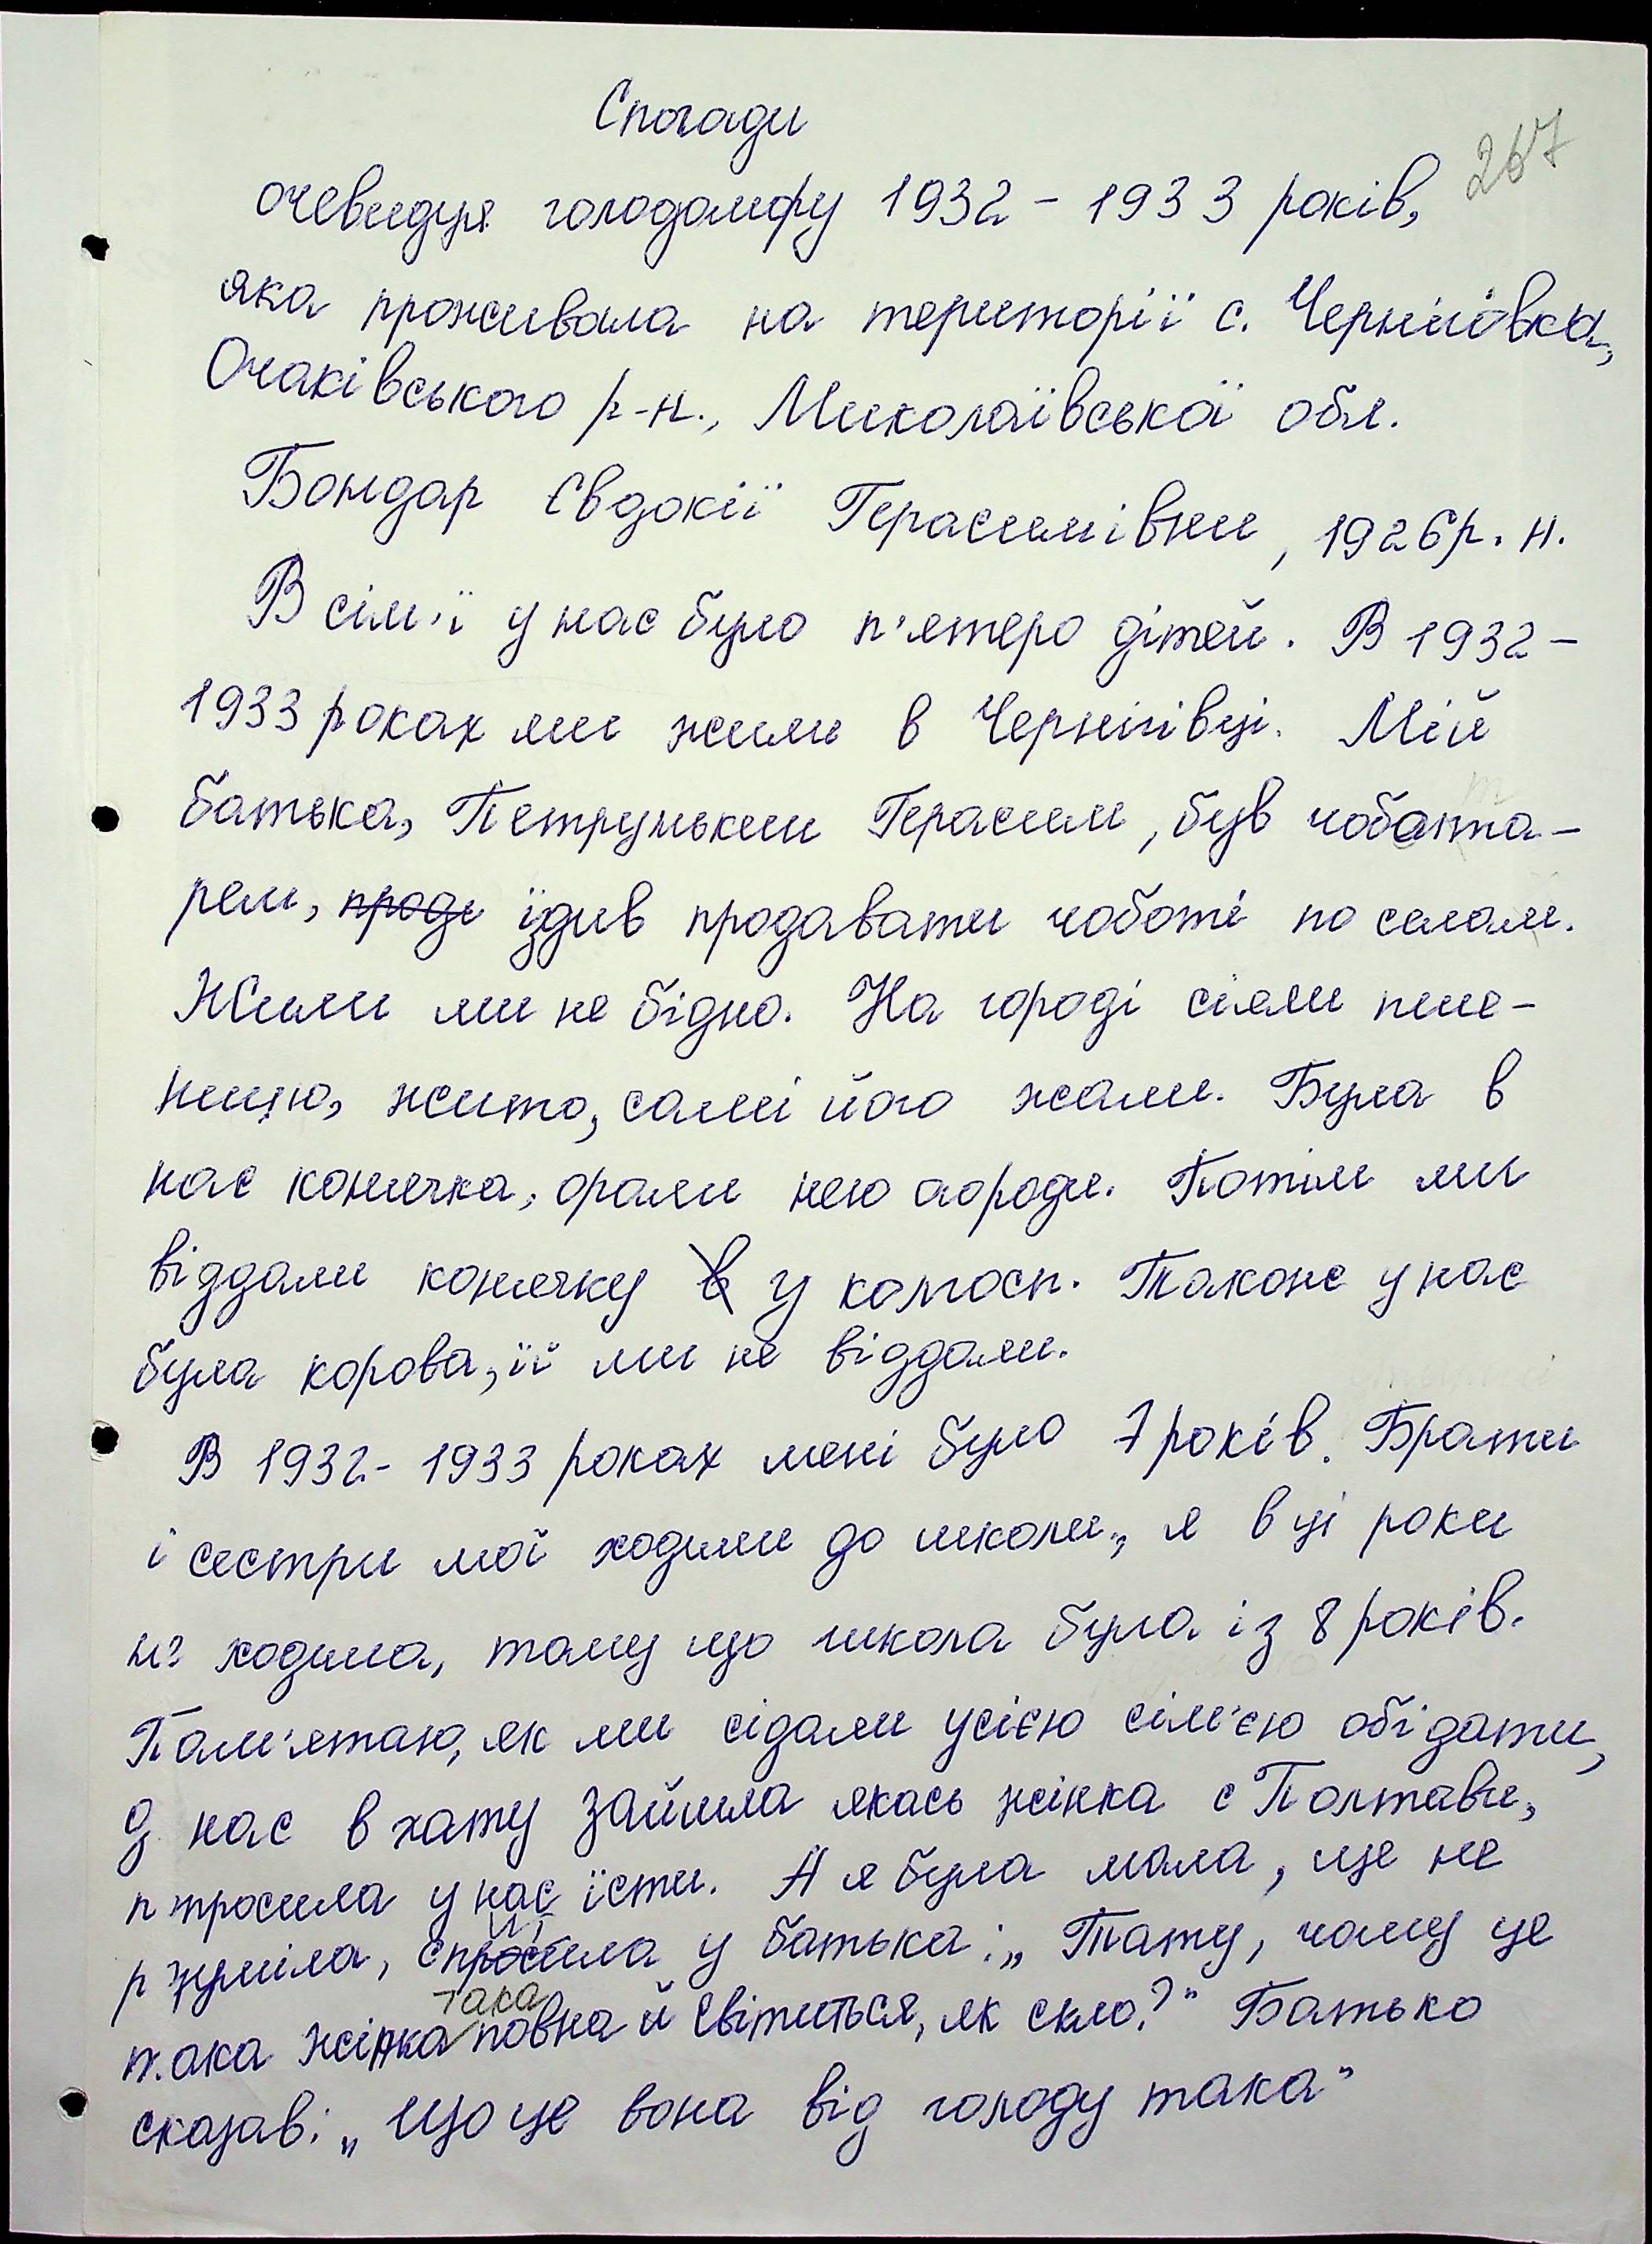 Спогади
267
очевидця голодомору 1932 - 1933 років,
яка проживала на території с. Чернігівка,
Очаківського р-н., Миколаївської обл.
Бондар Євдокії Герасимівни, 1926 р. н.
В сім'ї у нас було п'ятеро дітей. В 1932 -
1933 роках ми жили в Чернігівці. Мій
батька, Петрунькин Герасим, був чобота-
рем, проде їздив продавати чоботі по селам.
Жили ми не бідно. На городі сіяли пше-
ницю, жито, самі його жали. Була в
нас конячка, орали нею городи. Потім ми
віддали конячку в у колгосп. Також у нас
була корова, її ми не віддали.
В 1932 - 1933 роках мені було 7 років. Брати
і сестри мої ходили до школи, я в ці роки
не ходила, тому що школа була із 8 років.
Пам'ятаю, як ми сідали усією сім'єю обідати,
д нас в хату зайшла якась жінка с Полтави,
просила у нас їсти. А я була мала, ще не
розуміла, спросила у батька: „Тату, чому це
така
така жінка повна й світиться, як скло?" Батько
сказав: „Що це вона від голоду така"